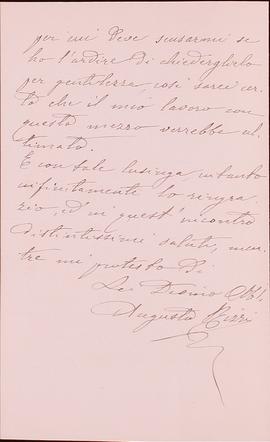 per cui Deve scusarmi se
ho l'ardire di chiederglielo
per gentilezza, così sarei cer-
to che il mio lavoro con
questo mezzo verrebbe ul-
timato.
E con tale lusinga intanto
infinitamente lo ringra-
zio, ed in quest'incontro
distintissimi saluti, men-
tre mi protesto di
Lei
Augusto Rizzi